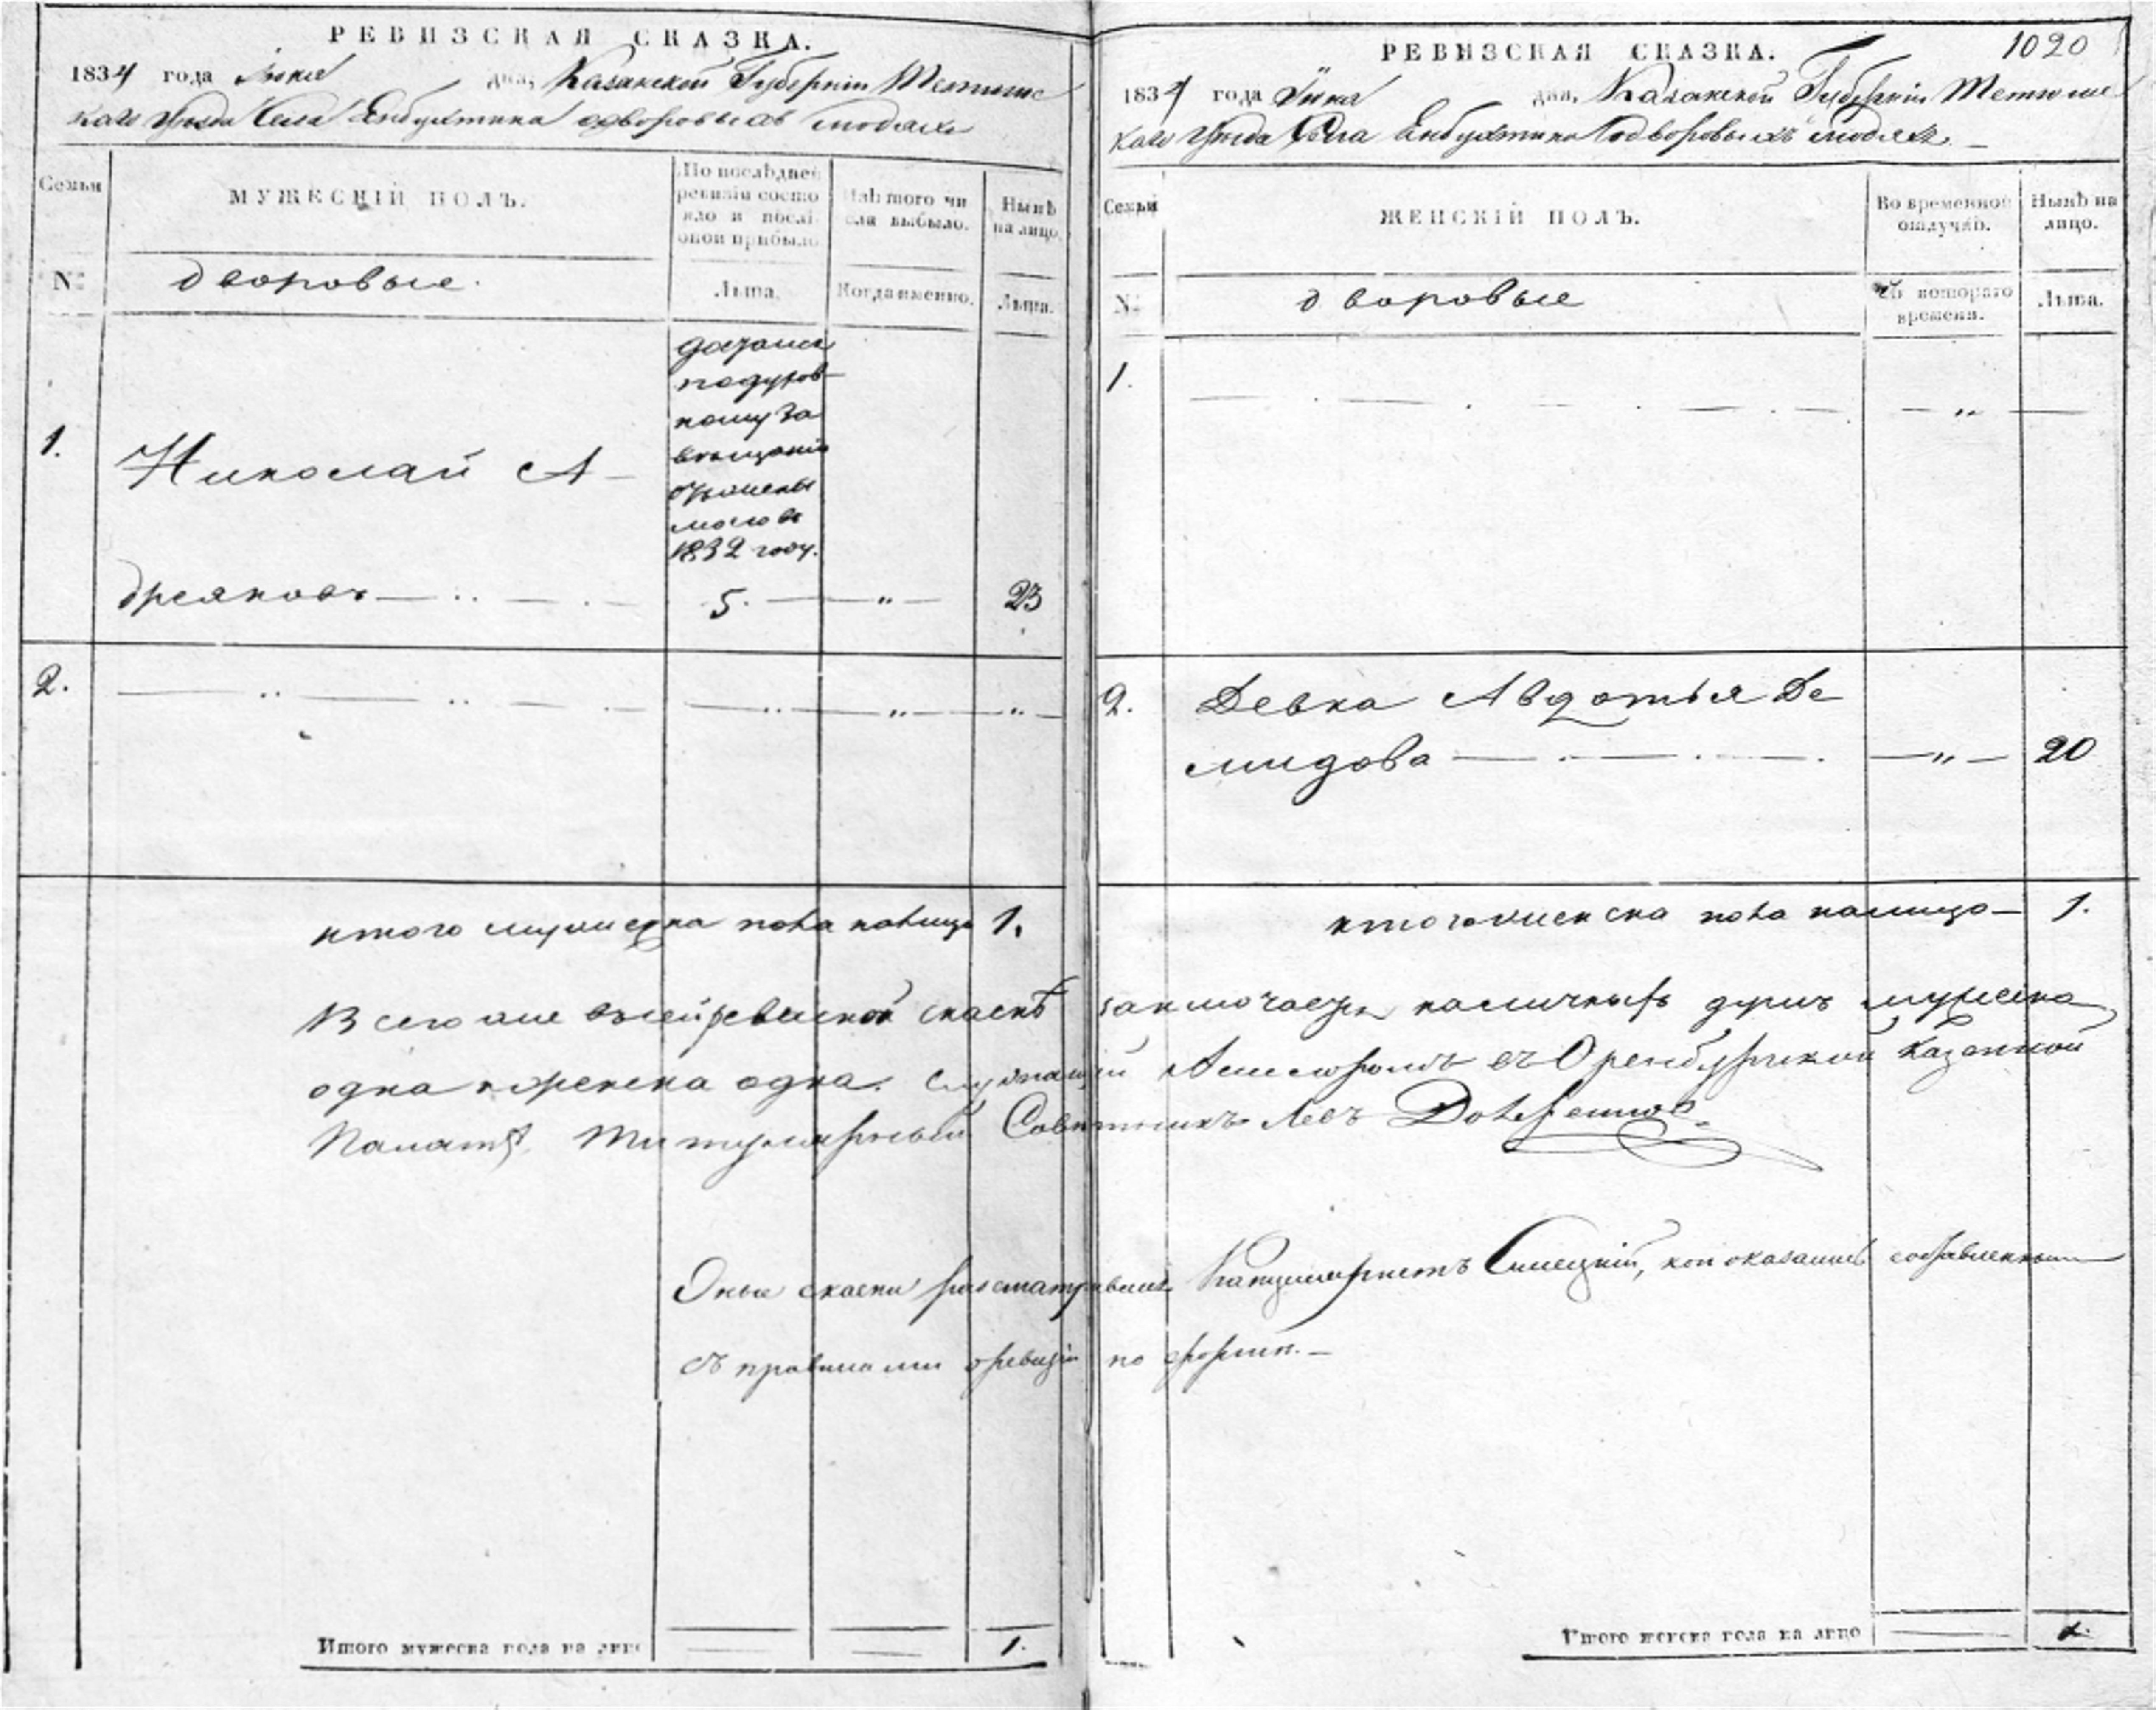 РЕВИЗСКАЯ СКАЗКА.
1834 года Іюня дня, Казанской Губерніи Тетюшс
каго Уѣзда Села Енбухтина одворовыхъ людяхъ
Семьи
МУЖЕСКІЙ ПОЛЪ.
По послѣдней
ревизіи состо
яло и послѣ
оной прибыло
Изъ того чи
сла выбыло.
Нынѣ
на лицо.
№
дворовые.
Лѣта.
Когда именно.
Лѣта.
1.
Николай А
1832 году.
5. — „ — 23
2.
итого мужеска пола налицо 1.
Итого мужеска пола на лицо 1.
1020
РЕВИЗСКАЯ СКАЗКА.
1834 года Іюня дня, Казанской Губерніи Тетюшс
каго Уѣзда Села Енбухтина одворовыхъ людяхъ. —
Семьи
ЖЕНСКІЙ ПОЛЪ.
Во временной
отлучкѣ.
Нынѣ на
лицо.
№
дворовые
Съ котораго
времени.
Лѣта.
1.
2. Девка Авдотья Де
мидова — „ — 20
итого женска пола налицо — 1.
Всего же въ сей ревизской скаскѣ заключается наличныхъ душъ мужеска
одна и женска одна. Служащій Ассесоромъ въ Оренбургской Казенной
Палатѣ Титулярный Советникъ Левъ
Оные скаски разсматривалъ Канцеляристъ кои оказались составленными
съ правилами оревизіи по форме. —
Итого женска пола на лицо